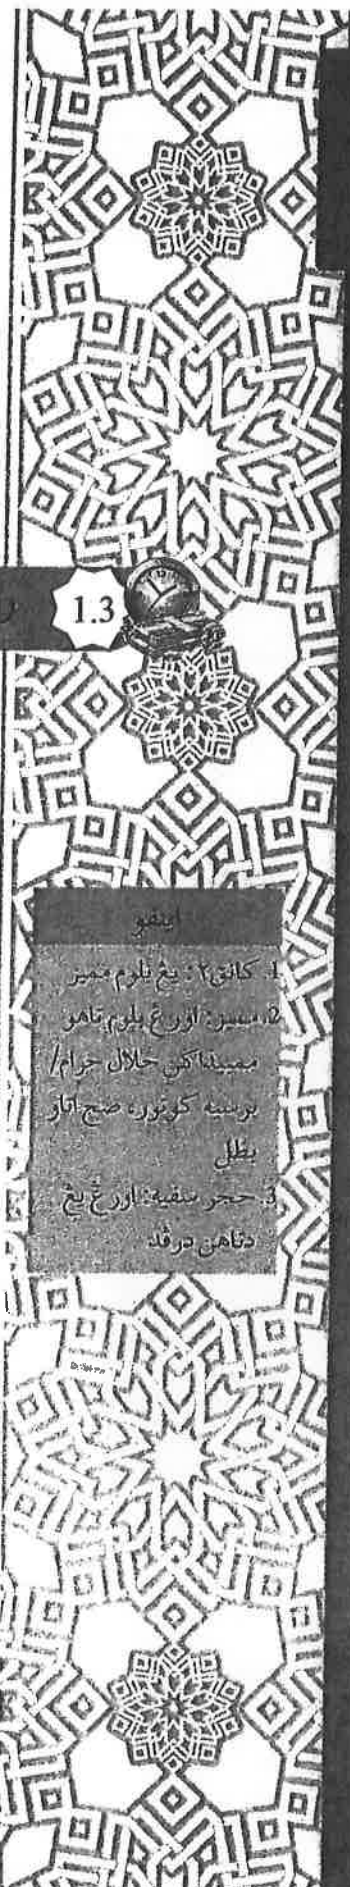 1.3
اينفو
1. کانق٢ : يڠ بلوم مميز
2. مميز : اورڠ بلوم تاهو
ممبيذاکن حلال حرام/
برسيه کوتور، صح اتاو
بطل
3. حجر سفيه: اورڠ يڠ
دتاهن درڤد